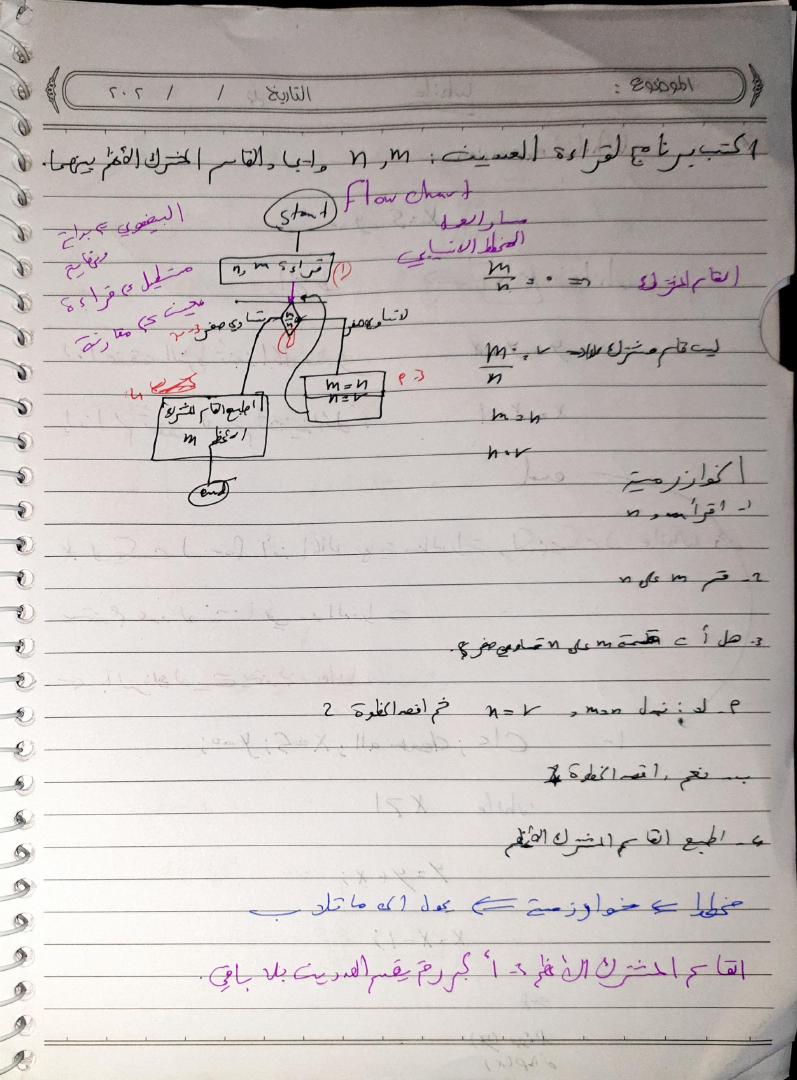 الموضوع :
التاريخ / / ٢٠٢
اكتب برنامج لقراءة العددين: n, m وايجاد القاسم المشترك الأعظم بينهما.
Flow chart
المخطط الانسيابي
البيضوي ⇐ بداية
ونهاية
مستطيل ⇐ قراءة
معين ⇐ مقارنة
Start
قراءة n, m
(1)
m/n
تساوي صفر
لا تساوي صفر
m = n
n = r
اطبع القاسم المشترك
الاعظم m
end
القاسم المشترك
m/n = 0
ليس قاسم مشترك
m/n
m = n
n = r
الخوارزمية
1- اقرأ m و n
2- قسم m على n
3- هل أن قسمة m على n تساوي صفر؟
P- لا: نبدل m=n و n=r ثم اقصد الخطوة 2
ب- نعم، اقصد الخطوة
4- اطبع القاسم المشترك الأعظم
مخطط ⇐ خوارزمية ⇐ يحول الى ماتلاب
القاسم المشترك الأعظم :- أكبر رقم يقسم العددين بلا باقي.